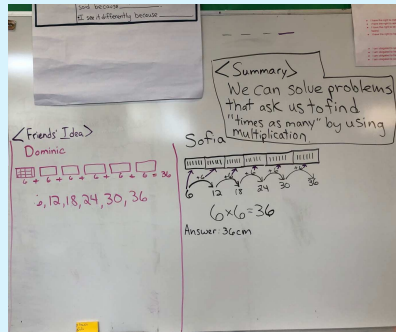 said because
I see it differently because
<Summary>
We can solve problems
that ask us to find
"times as many" by using
multiplication
<Friends' Idea>
Dominic
6 + 6 + 6 + 6 + 6 + 6 = 36
6, 12, 18, 24, 30, 36
Sofia
+6 +6 +6 +6 +6
6 12 18 24 30 36
6×6=36
Answer: 36cm